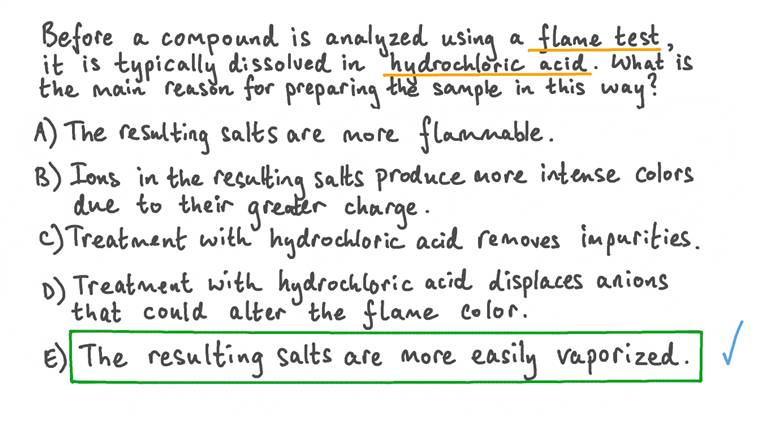 Before a compound is analyzed using a flame test,
it is typically dissolved in hydrochloric acid. What is
the main reason for preparing the sample in this way?
A) The resulting salts are more flammable.
B) Ions in the resulting salts produce more intense colors
due to their greater charge.
C) Treatment with hydrochloric acid removes impurities.
D) Treatment with hydrochloric acid displaces anions
that could alter the flame color.
E) The resulting salts are more easily vaporized.